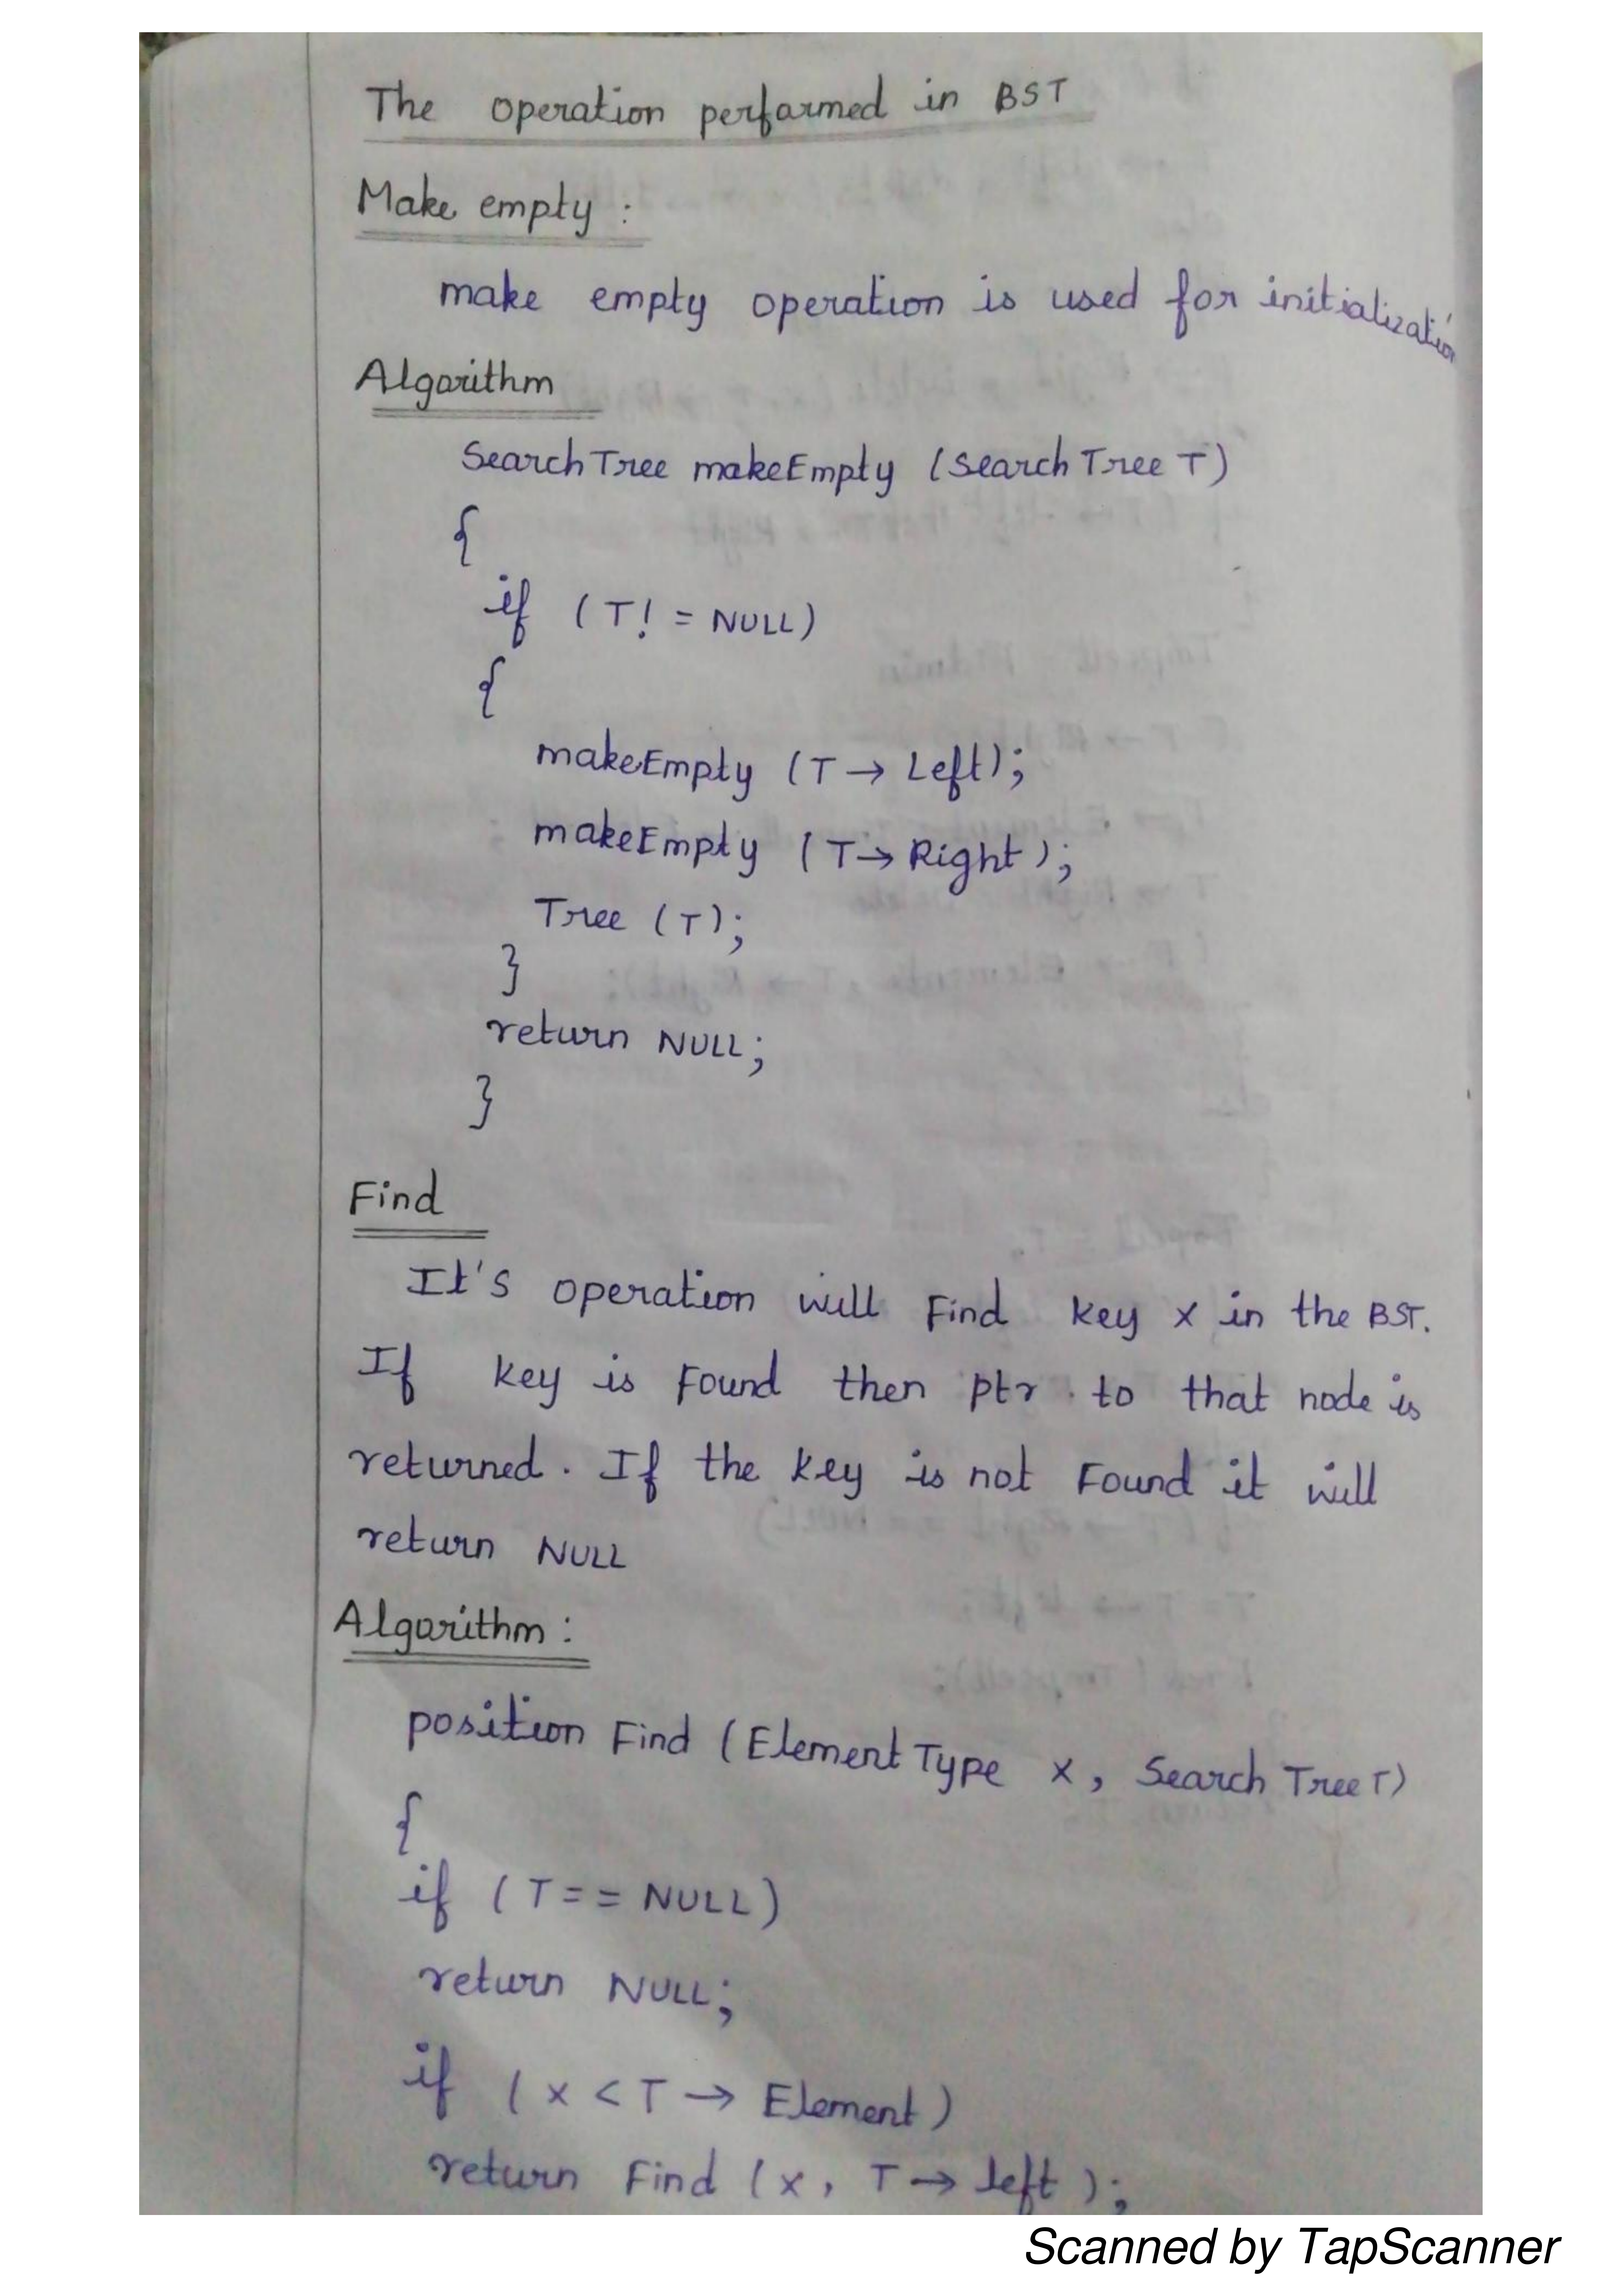 The operation performed in BST
Make empty :
make empty operation is used for initialization
Algorithm
SearchTree makeEmpty (SearchTree T)
{
if (T! = NULL)
{
makeEmpty (T → Left);
makeEmpty (T → Right);
Tree (T);
}
return NULL;
}
Find
It's operation will Find key x in the BST.
If key is Found then ptr to that node is
returned. If the key is not Found it will
return NULL
Algorithm :
position Find (ElementType x, SearchTree T)
{
if (T == NULL)
return NULL;
if (x < T → Element)
return Find (x, T → left);
Scanned by TapScanner